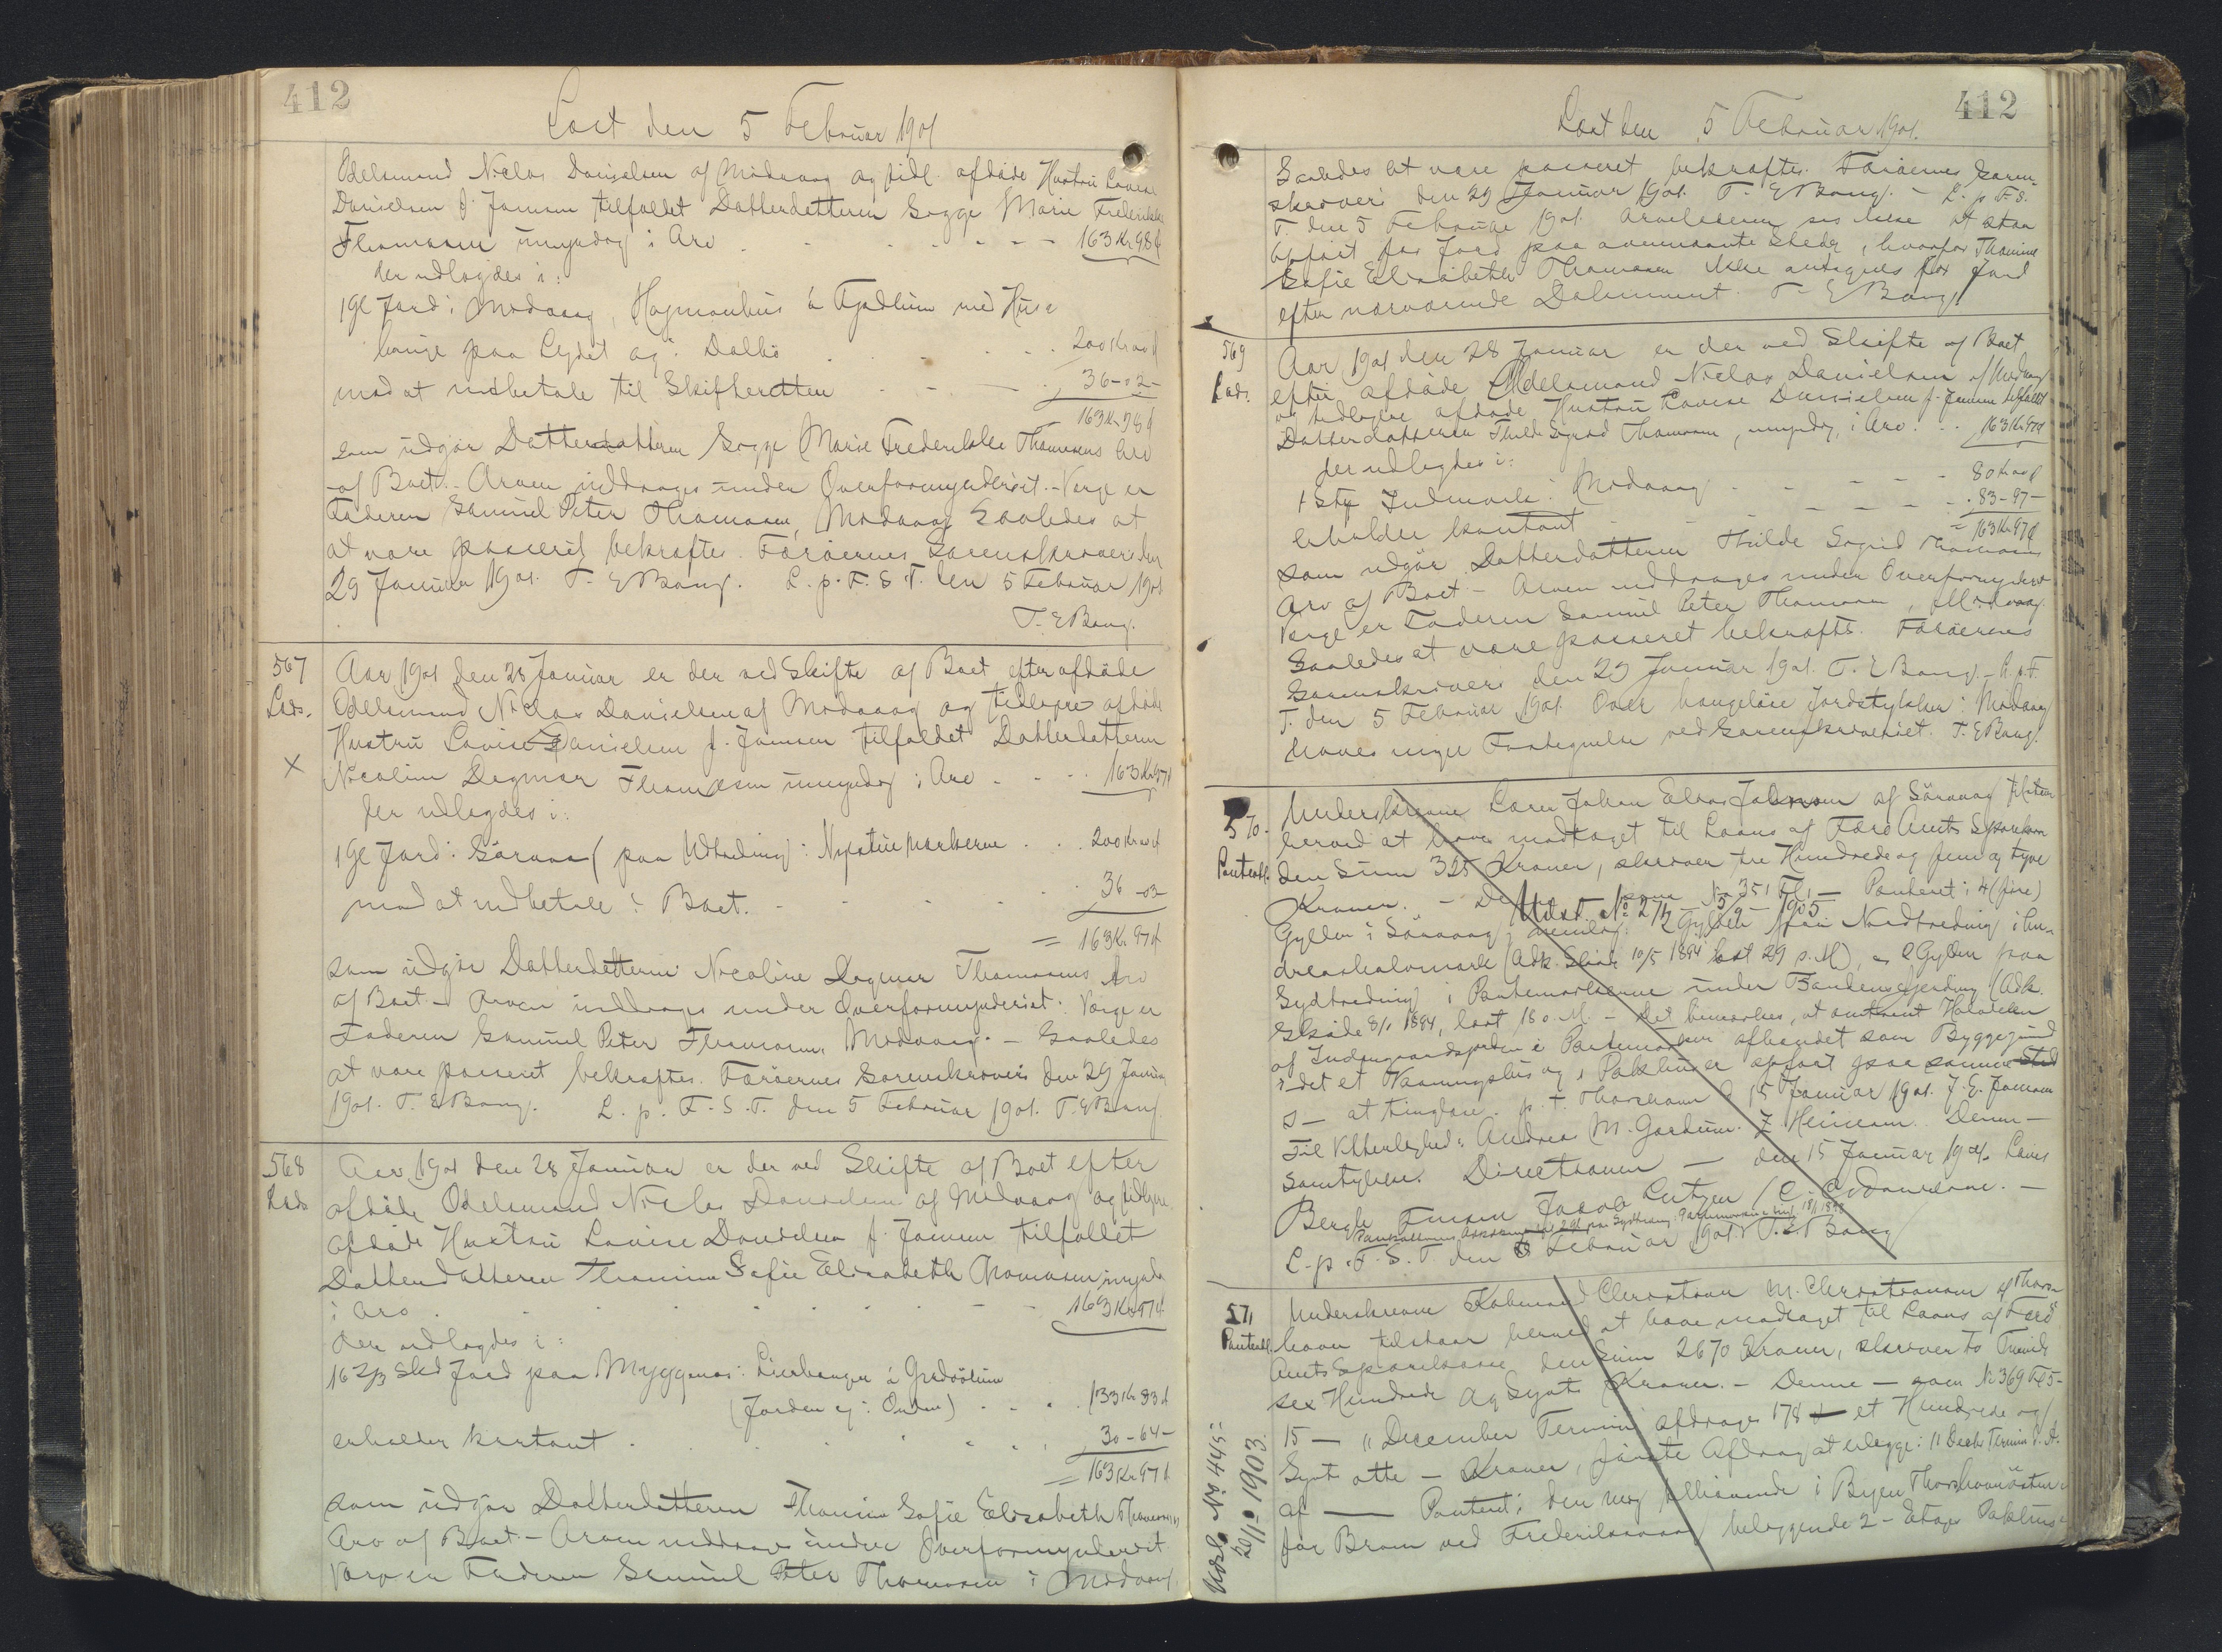 412
Læst den 5 Februar 1901
Odelsmand Niclas Danielsen af Midvaag og tidl. afdøde Hustru Lovise
Danielsen f. Jensen tilfaldet Datterdatteren Sigge Marie Frederikke
Thomasen umyndig i Arv 163 Kr 98 Ø
der udlagdes i:
1 Gl Jord i Midvaag, Høgmonhus à Fjødlum med Huse
bange paa og i Dalbø 200 Kr 00 Ø
mod at indbetale til Skifteretten 36-02-
163 Kr 98 Ø
som udgør Datterdatteren Sigge Marie Frederikke Thomasens Arv
af Boet. - Arven inddrages under Overformynderiet. - Værge er
Faderen Samuel Peter Thomasen, Midvaag Saaledes at
at være passeret bekræftes. Færøernes Sorenskriveri den
29 Januar 1901. T. E Bang. L. p. F. S. T. den 5 Februar 1901
T. E Bang.
567
Læs.
X
Aar 1901 den 28 Januar er der ved Skifte af Boet efter afdøde
Odelsmand Niclas Danielsen af Midvaag og tidligere afdøde
Hustru Lovise Danielsen f. Jensen tilfaldet Datterdatteren
Nicoline Dagmar Thomasen umyndig i Arv 163 Kr 97 Ø
der udlagdes i:
1 Gl Jord i Sørvaag (paa Udtræding i 200 Kr 00 Ø
mod at indbetale i Boet. 36-03-
= 163 Kr 97 Ø
som udgør Datterdatteren Nicoline Dagmar Thomasens Arv
af Boet - Arven inddrages under Overformynderiet. Værge er
Faderen Samuel Peter Thomasen, Midvaag. - Saaledes
at være passeret bekræftes. Færøernes Sorenskriveri den 29 Januar
1901. T. E Bang. L. p. F. S. T. den 5 Februar 1901. T. E Bang.
568
Læs
Aar 1901 den 28 Januar er der ved Skifte af Boet efter
afdøde Odelsmand Niclas Danielsen af Midvaag og tidligere
afdøde Hustru Lovise Danielsen f. Jensen tilfaldet
Datterdatteren Thomine Sofie Elisabeth Thomasen umyndig
i Arv 163 Kr 97 Ø
der udlagdes i:
16 2/3 Skd Jord paa Myggenæs i
(Jorden ej i Orden) 133 Kr 33 Ø
erholder kontant 30-64-
= 163 Kr 97 Ø
som udgør Datterdatteren Thomine Sofie Elisabeth Thomasens
Arv af Boet - Arven inddrages under Overformynderiet
Værge er Faderen Samuel Peter Thomasen i Midvaag.
412
Læst den 5 Februar 1901.
Saaledes at være passeret bekræftes. Færøernes Soren-
skriveri den 29 Januar 1901. T. E Bang. - L. p. F. S.
T. den 5 Februar 1901. Arveladeren ses ikke at staa
opført for Jord paa ovennævnte Sted, hvorfor Thomine
Sofie Elisabeth Thomasen ikke antegnes for Jord
efter nærværende Dokument. T. E Bang.
569
Læs.
Aar 1901 den 28 Januar er der ved Skifte af Boet
efter afdøde Odelsmand Niclas Danielsen af Midvaag
og tidligere afdøde Hustru Lovise Danielsen f. Jensen tilfaldet
Datterdatteren Thilde Sigrid Thomasen, umyndig, i Arv 163 Kr 97 Ø
der udlagdes i:
1 Stk Indmark i Midvaag 80 Kr 00 Ø
erholder kontant 83-97-
= 163 Kr 97 Ø
som udgør Datterdatteren Thilde Sigrid Thomasens
Arv af Boet - Arven inddrages under Overformynderiet
Værge er Faderen Samuel Peter Thomasen, Midvaag
Saaledes at være passeret bekræftes. Færøernes
Sorenskriveri den 29 Januar 1901. T. E Bang. - L. p. F. S.
T. den 5 Februar 1901. Over haugeløse Jordstykker i Midvaag
haves ingen Fortegnelse ved Sorenskriveriet. T. E Bang.
570.
Panteobl.
Underskrevne Lærer Johan Elias Johansen af Sørvaag tilstaar
herved at have modtaget til Laans af Færø Amts Sparekasse
den Sum 325 Kroner, skriver tre Hundrede og fem og tyve
Kroner. - Denne - som No 351 Fl. - Panteret i 4 (fire)
Udsl. No 274 - 5/9 - 1905.
Gylden i Sørvaag, nemlig: 2 Gylden fra Nordtræding i
(Adk. Skøde 10/5 1894 læst 29 s. M.), og 2 Gylden paa
Sydtræding i under (Adk.
Skøde 8/1 1894, læst 18 s. M. - det bemærkes, at omtrent Halvdelen
af afhændet som Byggegrund
et Vaaningshus og 1 Pakhus er opført paa samme
S - at tinglæse. p. t. Thorshavn d 15 Januar 1901. J. E. Johansen
Til Vitterlighed: Andreas M. Z Heinesen. Denne -
samtykkes. Directionen - den 15 Januar 1901. Louis
Bergh Jacob Lützen / C.
L. p. F. S. T. den 5 Februar 1901. T. E. Bang
571
Panteobl.
Underskrevne Købmand Christian M. Christiansen af Thors-
havn tilstaar herved at have modtaget til Laans af Færø
Amts Sparekasse den Sum 2670 Kroner, skriver to Tusinde
sex Hundrede og Synti Kroner. - Denne - som No 369 Fl 5-
15 - 11 December Termin afdrage 178 - et Hundrede og
Synti otte - Kroner, første Afdrag at erlægge i 11 Decbr Termin d. A.
af - Panteret i den mig tilhørende i Byen Thorshavn østen-
for Broen ved Frederiksvaag beliggende 2 - Etages Pakhus
Udsl. No 445:
20/10 1903.